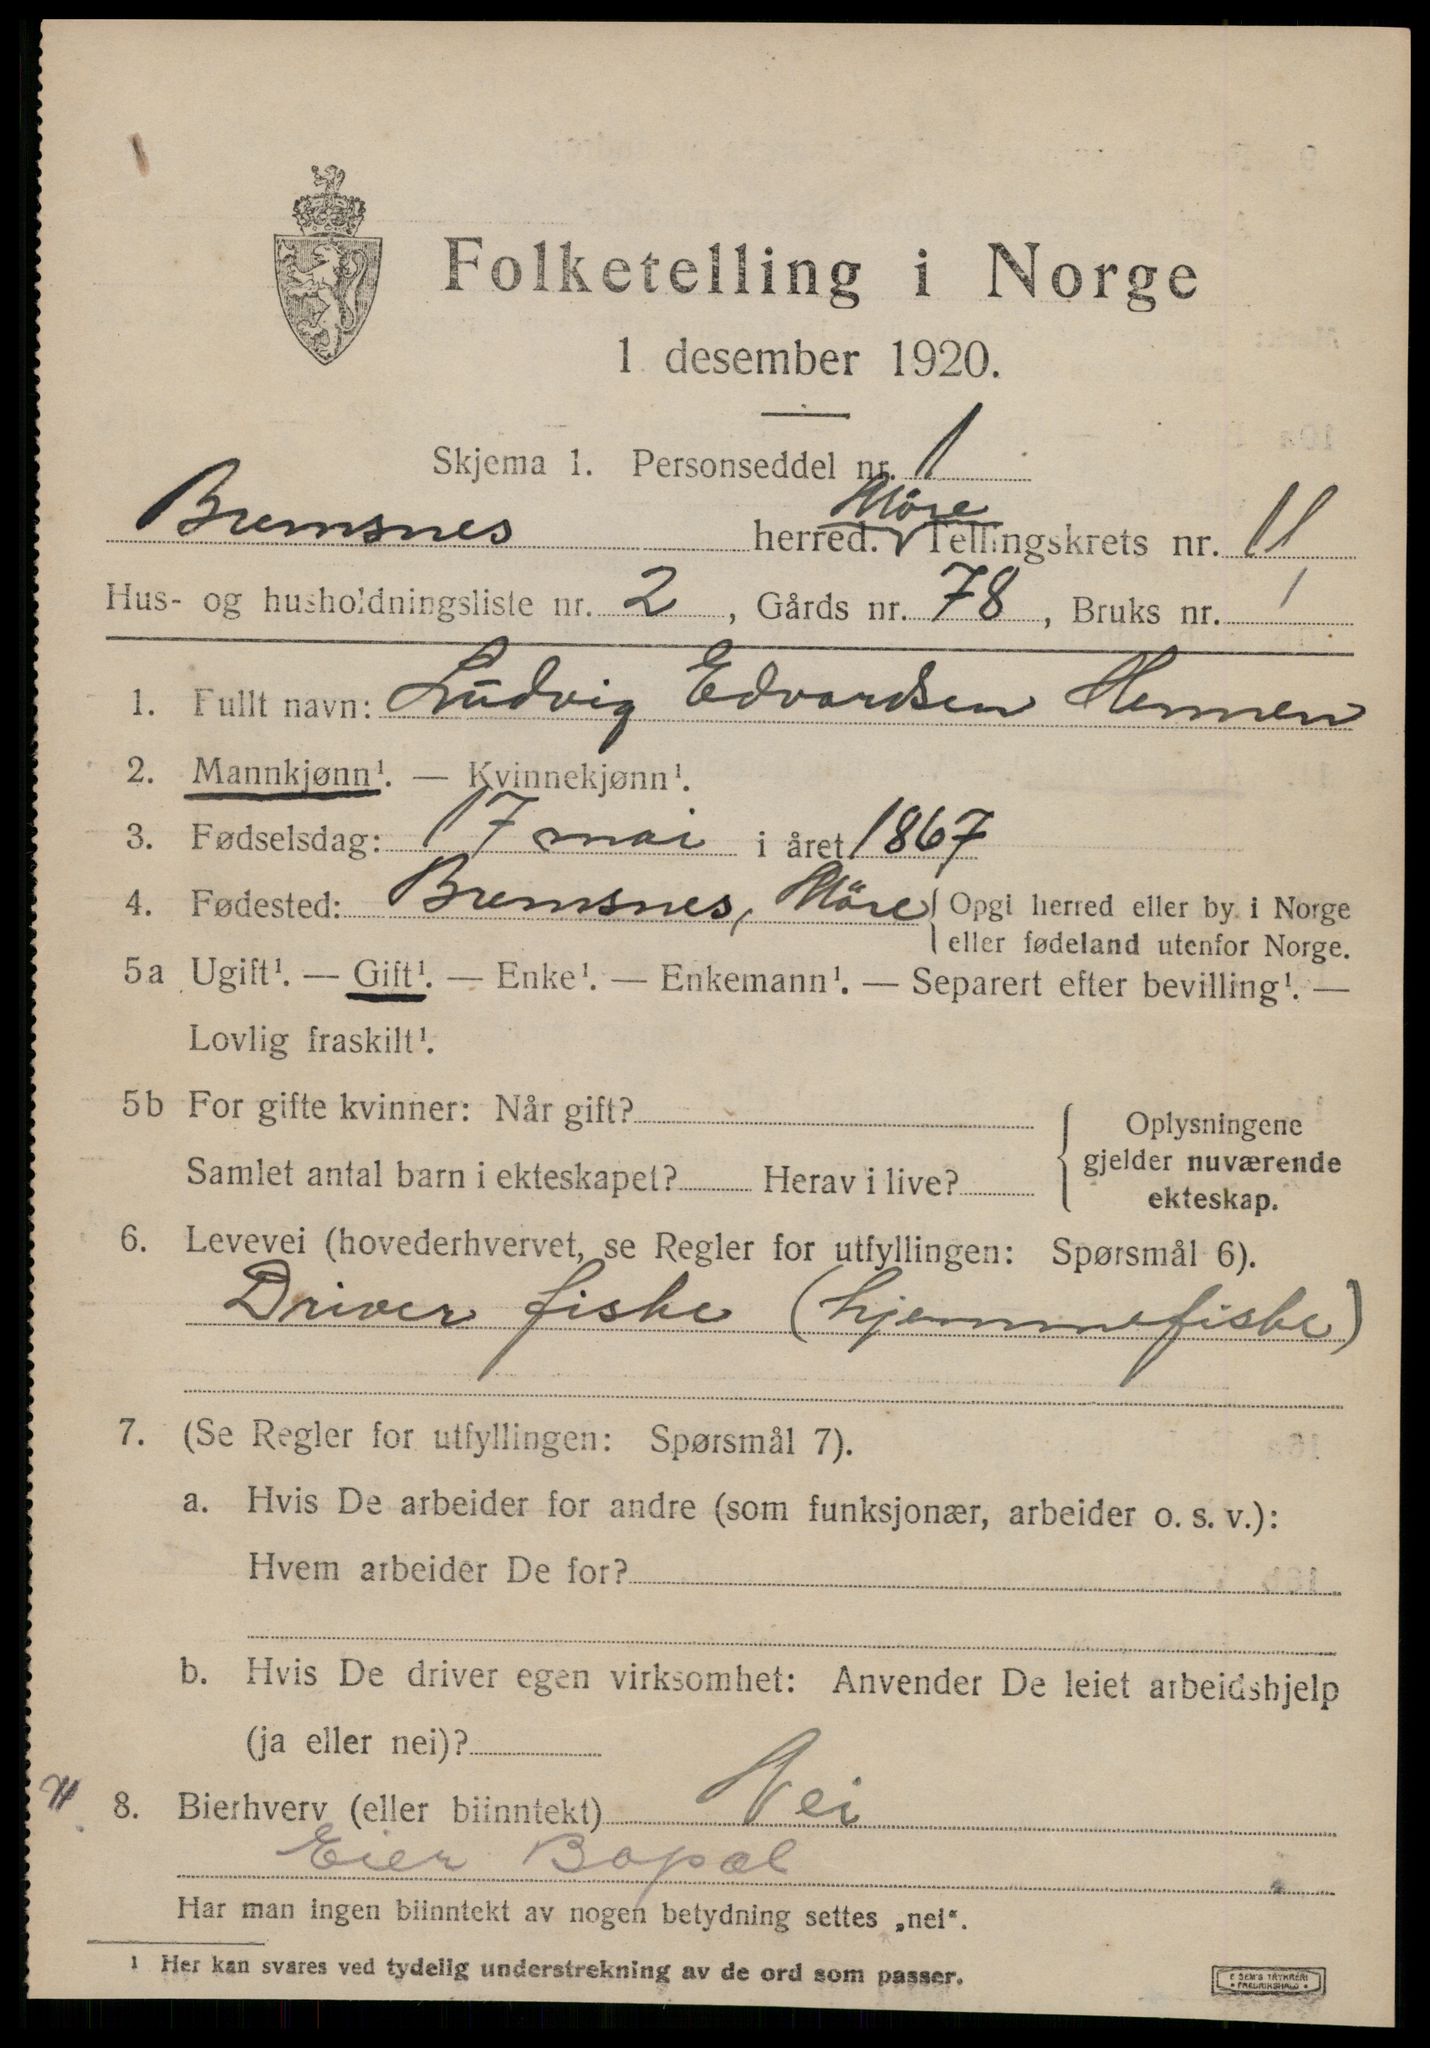 Folketelling i Norge
1 desember 1920.
Skjema 1. Personseddel nr. 1
Bremsnes herred. Möre Tellingskrets nr. 11
Hus- og husholdningsliste nr. 2, Gårds nr. 78, Bruks nr. 1
1. Fullt navn: Ludvig Edvardsen Hennen
2. Mannkjønn¹. — Kvinnekjønn¹.
3. Fødselsdag: 17 mai i året 1867
4. Fødested: Bremsnes, Möre { Opgi herred eller by i Norge
eller fødeland utenfor Norge.
5a Ugift¹. — Gift¹. — Enke¹. — Enkemann¹. — Separert efter bevilling¹. —
Lovlig fraskilt¹.
5b For gifte kvinner: Når gift?
Samlet antal barn i ekteskapet? Herav i live?
Oplysningene
gjelder nuværende
ekteskap.
6. Levevei (hovederhvervet, se Regler for utfyllingen: Spørsmål 6).
Driver fiske (hjemmefiske)
7. (Se Regler for utfyllingen: Spørsmål 7).
a. Hvis De arbeider for andre (som funksjonær, arbeider o. s. v.):
Hvem arbeider De for?
b. Hvis De driver egen virksomhet: Anvender De leiet arbeidshjelp
(ja eller nei)?
8. Bierhverv (eller biinntekt) Nei
Eier Bopæl
Har man ingen biinntekt av nogen betydning settes „nei“.
1 Her kan svares ved tydelig understrekning av de ord som passer.
E SEM'S TRYKKERI
• FREDRIKSHALD •